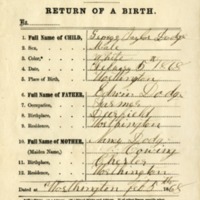 RETURN OF A BIRTH.
No.
1. Full Name of CHILD, George Taylor Dodge
2. Sex, Male
3. Color, White
4. Date of Birth, 5 1868
5. Place of Birth, Worthington
6. Full Name of FATHER, Edwin Dodge
7. Occupation, Farmer
8. Birthplace,
9. Residence, Worthington
10. Full Name of MOTHER, Dodge
(Maiden Name,)
11. Birthplace, Chester
12. Residence, Worthington
Dated at Worthington 5th 1868